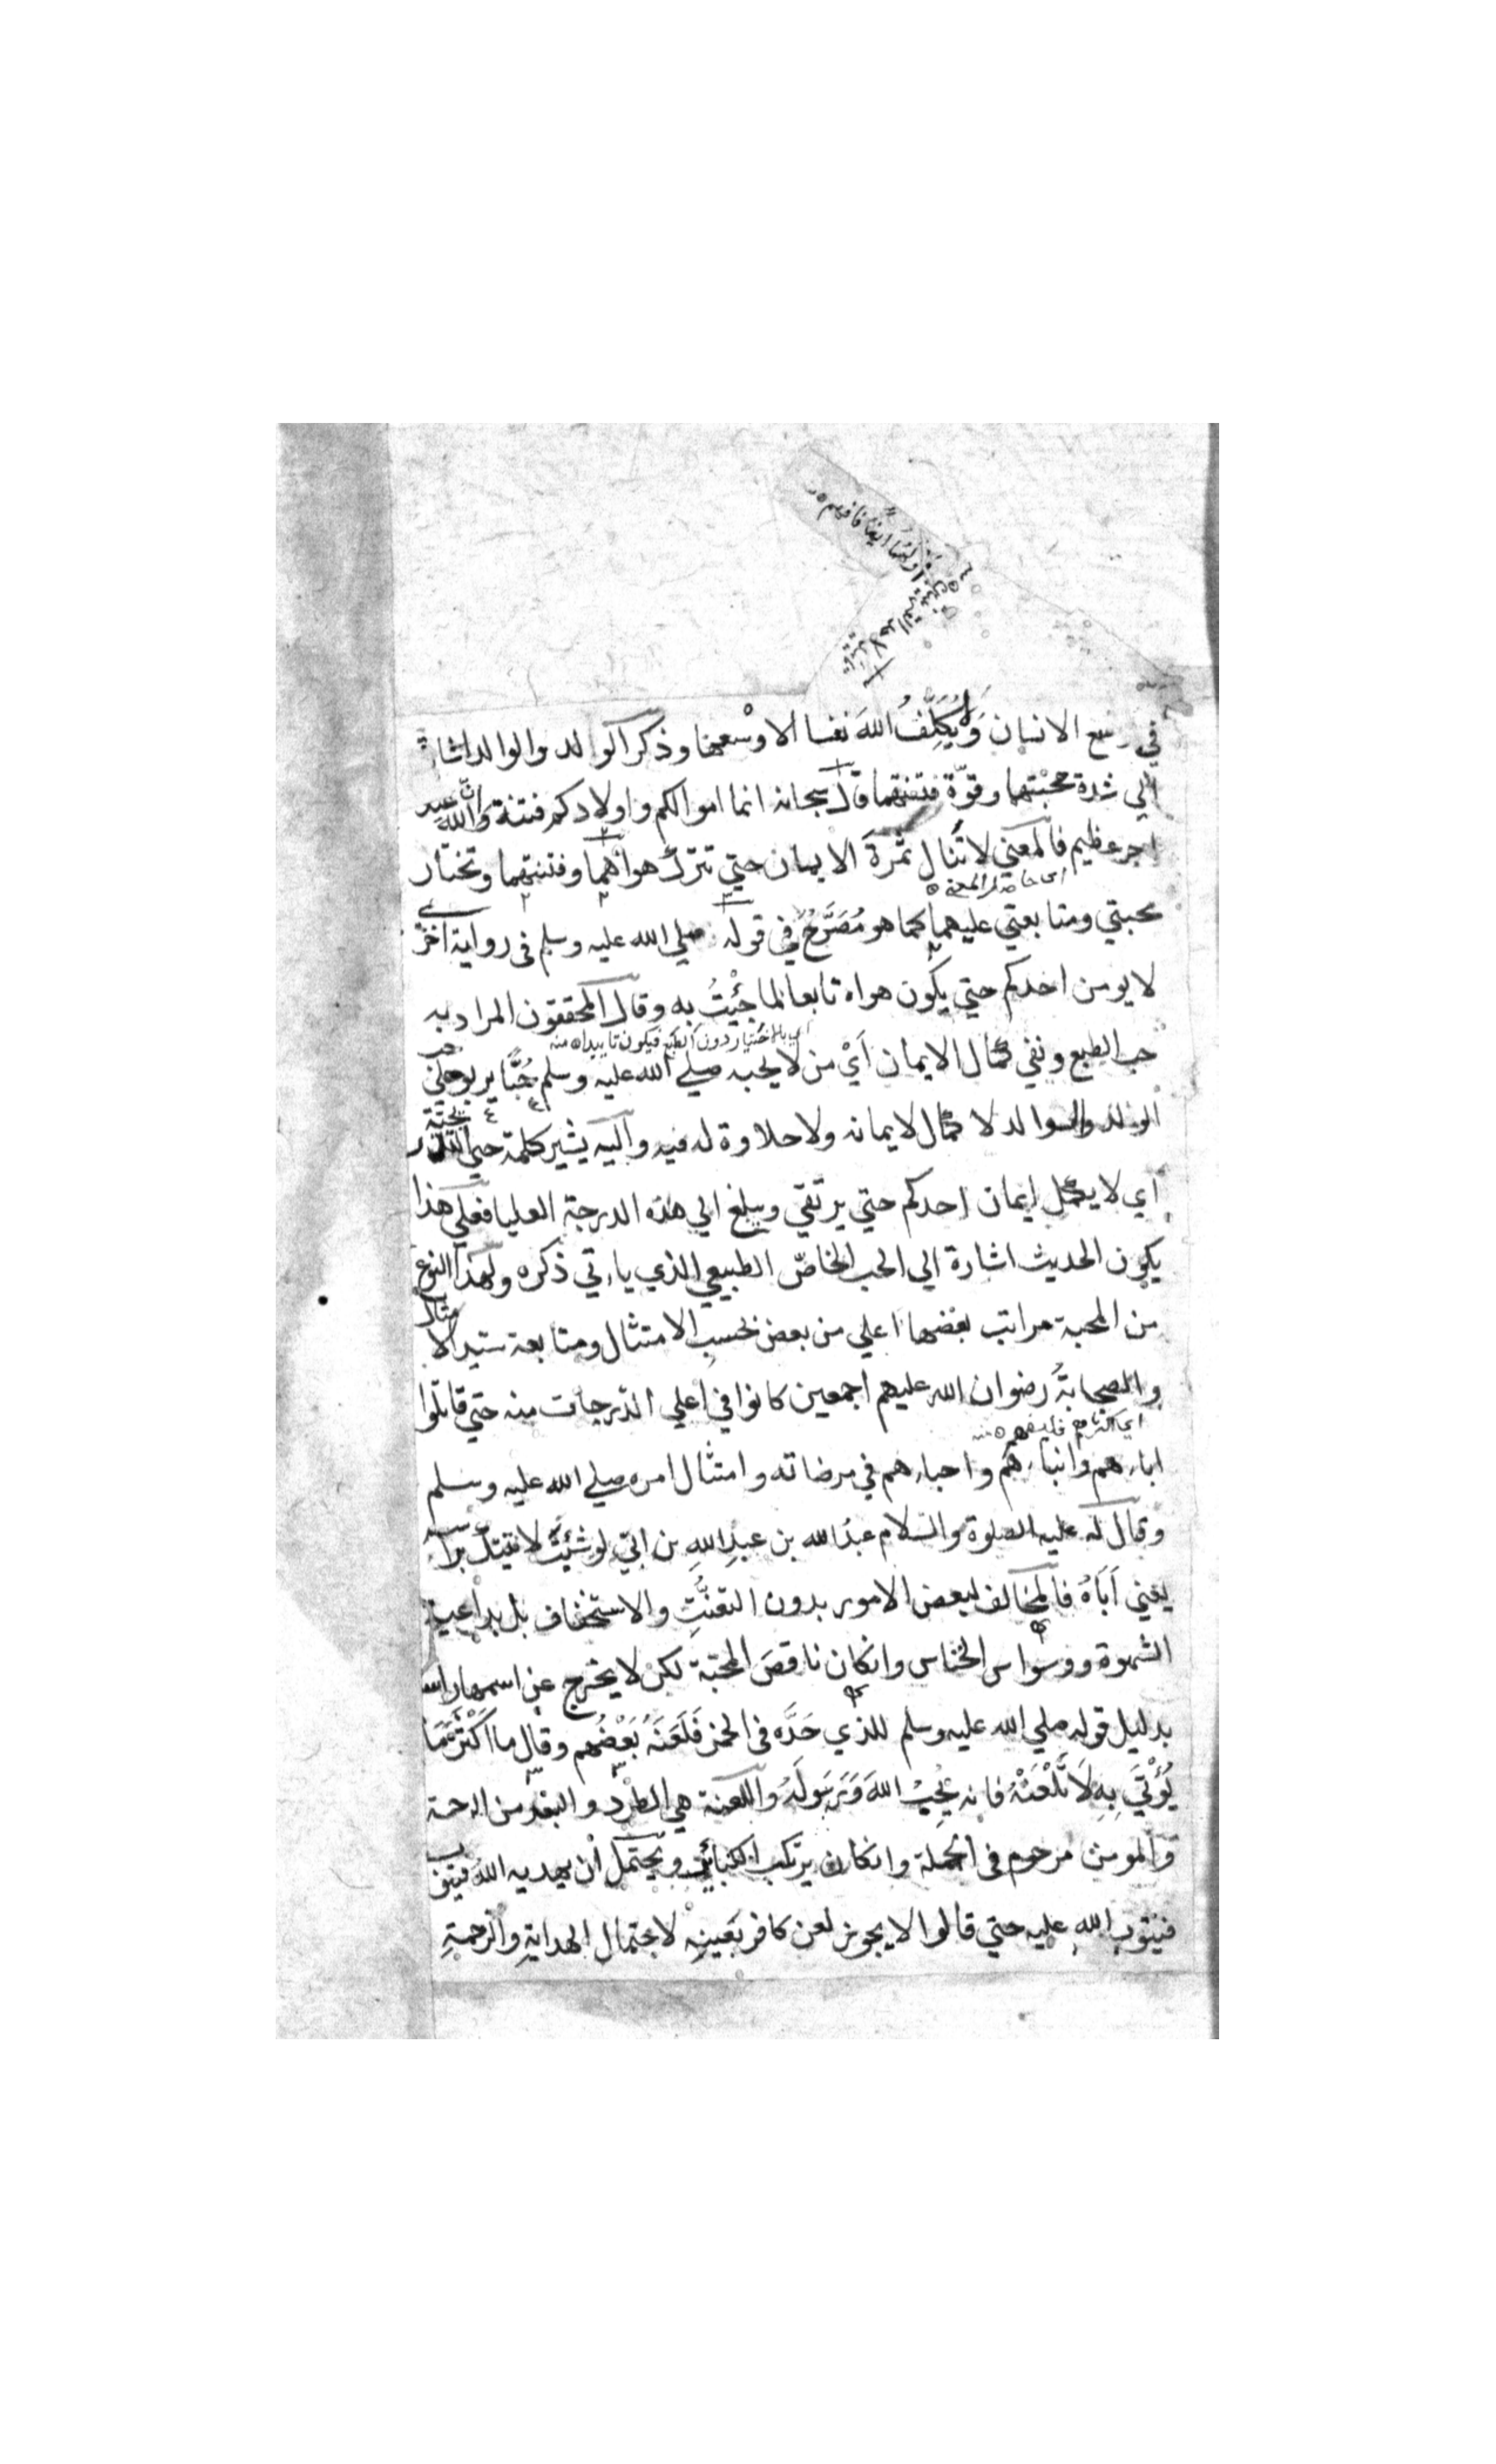 في وسع الانسان وَلَا يُكَلِّفُ اللهَ نفسا الا وسْعها وذكر الوالد والوالد اشارة
الي شدة محبتهما وقوّة فتنتهما قال سبحانه انما اموالكم واولادكم فتنة وَاَنَّ الله عنده
اجر عظيم فالمعني لا تَنال ثمرةَ الايمان حتي تترك هواهما وفتنتهما وتختار
اي حاصل المعني
محبتي ومتابعتي عليهما كما هو مُصَرَّحٌ في قوله صلي الله عليه وسلم في رواية اخرٰے
لا يومن احدكم حتي يكون هواه تابعا لما جِئْتُ به وقال المحققون المراد به
اي بالاختيار دون الطبع فيكون تاييدا ه منه
حب الطبع ونفي كمال الايمان اَيْ من لا يحبه صلے الله عليه وسلم حُبًّا يربو علي حب
الولد والوالد لا كمال لايمانه ولا حلاوة له فيه واليه يشير كلمة حتي
اي لا يكمل ايمان احدكم حتي يرتقي ويبلغ الي هذه الدرجة العليا فعلي هذا
يكون الحديث اشارة الي الحب الخاصّ الطبيعي الذي ياتي ذكره ولهذا النوع
من المحبة مراتب بعضها اعلي من بعض بحسب الامتثال ومتابعة سيد الا
والصحابةُ رضوان الله عليهم اجمعين كانوا في اعلي الدّرجات منه حتي قاتلوا
اي اكثرهم
اباءهم وابناءهم واحباءهم في مرضاته وامتثال امره صلے الله عليه وسلم
وقال له عليه الصلوة والسلام عبدُ الله بن عبدِ اللهِ بن ابَيّ لو شئتَ لاتيتك براسه
يعني اَبَاهُ فالمخالف لبعض الامور بدون التعنُّتِ والاستخفاف بل بداعية
الشهوة ووسواس الخناس وان كان ناقصَ المحبّة لكن لا يخرج عن اسمها راسا
بدليل قوله صلي الله عليه وسلم للذي حَدَّه في الخمر فَلَعَنَهُ بَعْضُهم وقال ما اَكْثَرَ مَا
يُؤْتَي بِهِ لَا تَلْعَنْهُ فانه يُحِبُّ اللهَ وَرَسُولَهُ واللعنة هي الطَّرْد والبعْد من الرحمة
والمومن مرحوم في الجملة وان كان يرتكب الكبائر ويحتمل اَن يهديه اللهُ فيتوب
فيتوب الله عليه حتي قالوا لا يجوز لعن كافر بعينِهِ لاحتمال الهدايةِ والرحمةِ